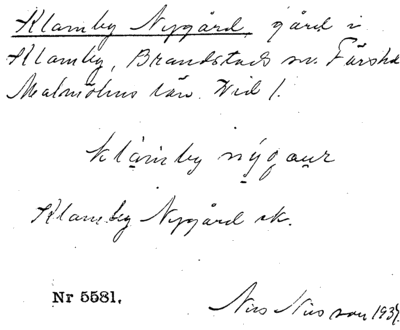 Klamby Nygård, gård i
Klamby, Brandstads sn. Färs hd
Malmöhus län. Vid 1.
klamby nýgaur
Klamby Nygård sk.
Nr 5581.
Nils Nilsson 193